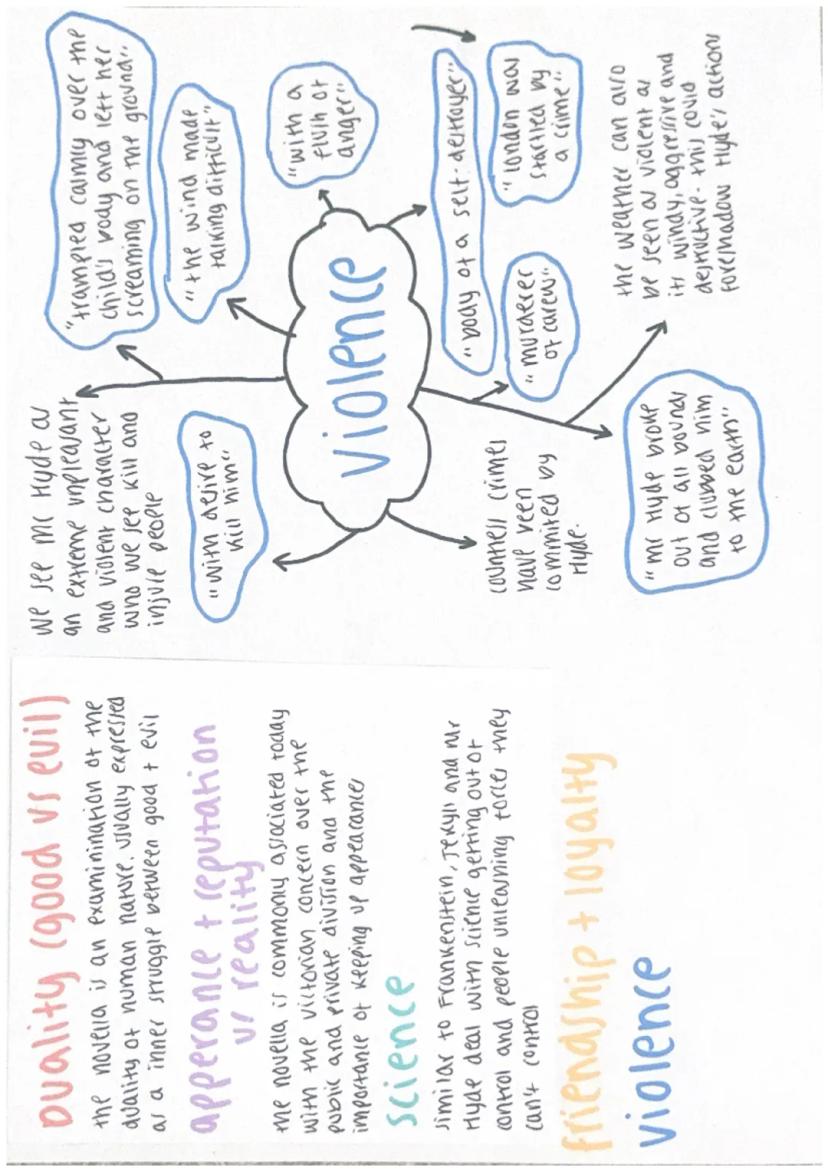 Duality (good vs evil)
the novella is an examinination of the
duality of human nature. usually expressed
as a inner struggle between good + evil
apperance + reputation
vs reality
the novella is commonly associated today
with the victorian concern over the
public and private division and the
importance of keeping up appearances
science
similar to Frankenstein, Jekyll and Mr
Hyde deal with science getting out of
control and people unleashing forces they
can't control
friendship + loyalty
violence
we see Mr Hyde as
an extreme unpleasant
and violent character
who we see kill and
injure people
"trampled calmly over the
child's body and left her
screaming on the ground"
"the wind made
talking difficult"
"with a
flush of
anger"
"with desire to
kill him"
violence
"body of a self-destroyer"
"London was
startled by
a crime"
"murderer
of carew"
countless crimes
have been
commited by
Hyde.
"Mr Hyde broke
out of all bounds
and clubbed him
to the earth"
the weather can also
be seen as violent as
its windy, aggressive and
destructive. this could
foreshadow Hyde's actions